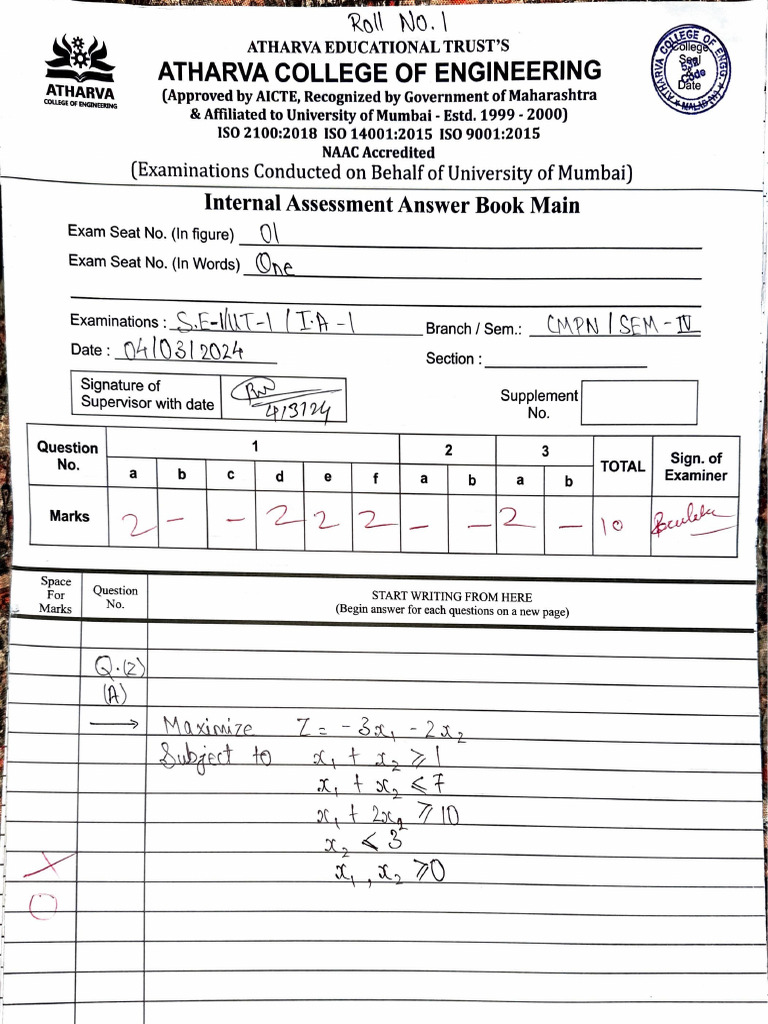 Roll No. 1
ATHARVA EDUCATIONAL TRUST'S
ATHARVA COLLEGE OF ENGINEERING
(Approved by AICTE, Recognized by Government of Maharashtra
& Affiliated to University of Mumbai - Estd. 1999 - 2000)
ISO 2100:2018 ISO 14001:2015 ISO 9001:2015
NAAC Accredited
(Examinations Conducted on Behalf of University of Mumbai)
ATHARVA
COLLEGE OF ENGINEERING
ATHARVA COLLEGE OF ENGG
College
Seal
Code
Date
Internal Assessment Answer Book Main
Exam Seat No. (In figure) 01
Exam Seat No. (In Words) One
Examinations : S.E-I/UT-I / I.A-I Branch / Sem.: CMPN / SEM-IV
Date : 04/03/2024 Section :
Signature of
Supervisor with date 4/3/24
Supplement
No.
Question No. 1 2 3 TOTAL Sign. of Examiner
a b c d e f a b a b
Marks 2 - - 2 2 2 - - 2 - 10
Space For Marks Question No. START WRITING FROM HERE
(Begin answer for each questions on a new page)
Q.(2)
(A)
→ Maximize Z = -3x₁ - 2x₂
Subject to x₁ + x₂ ⩾ 1
x₁ + x₂ ⩽ 7
x₁ + 2x₂ ⩾ 10
x₂ ⩽ 3
x₁, x₂ ⩾ 0
0